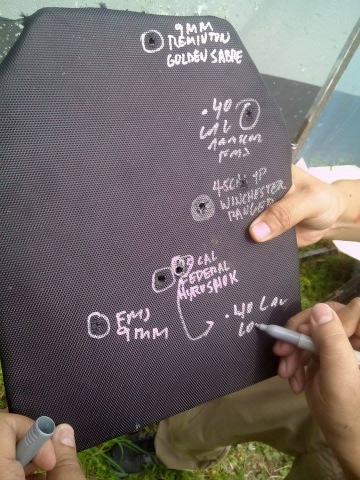 9MM
REMINTON
GOLDEN SABRE
.40
CAL
FMJ
45CAL +P
WINCHESTER
RANGER
CAL
FEDERAL
HYRDSHOK
FMJ
9MM
.40 CAL